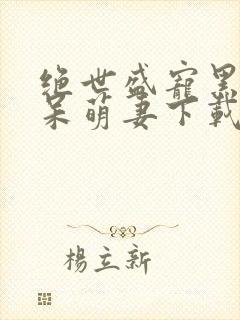 绝世盛宠黑
呆萌妻下載
楊立新